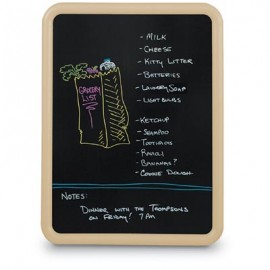 - MILK
- CHEESE
- KITTY LITTER
- BATTERIES
- LAUNDRY SOAP
- LIGHT BULBS
GROCERY
LIST
- KETCHUP
- SHAMPOO
- TOOTHPICKS
- RAVIOLI
- BANANAS?
- COOKIE DOUGH
NOTES:
DINNER WITH THE THOMPSONS
ON FRIDAY! 7 PM